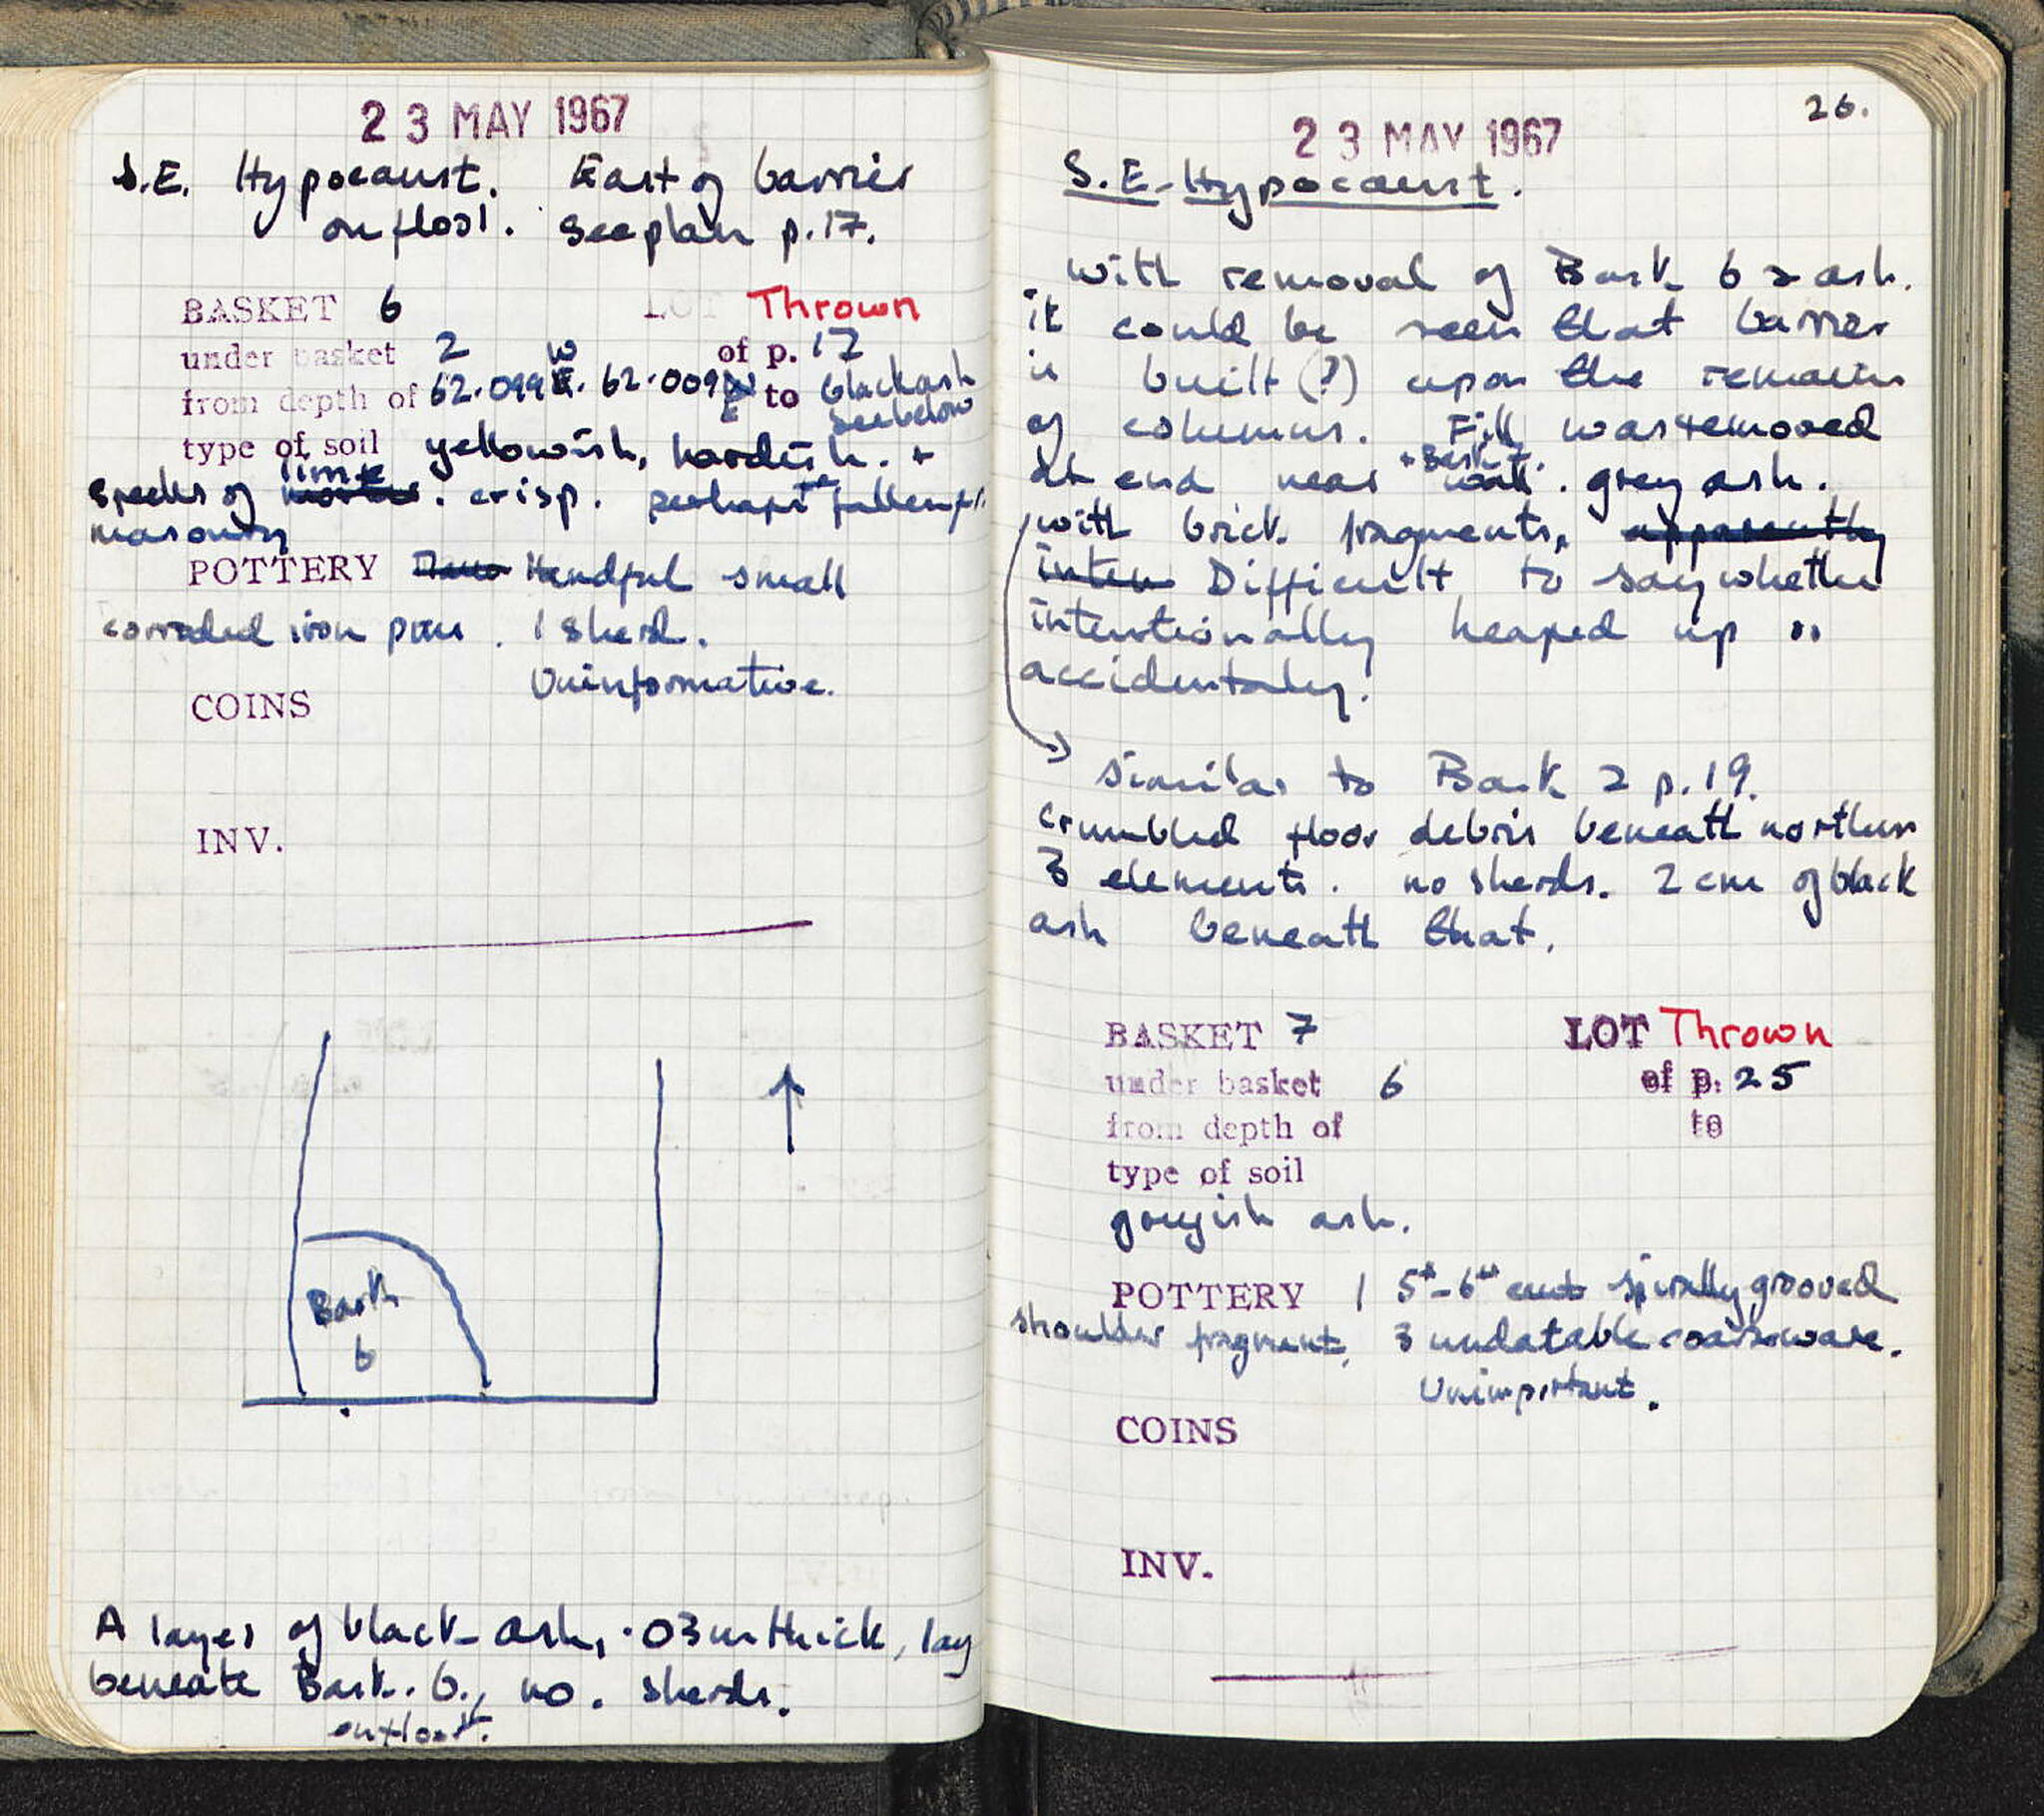 23 MAY 1967
S.E. Hypocaust. East of barrier
on floor. See plan p.17.
BASKET 6 LOT Thrown
under basket 2 of p. 17
from depth of 62.099 W E. 62.009 to black ash
see below
type of soil yellowish, hardish. +
specks of lime . crisp. perhaps fallen
masonry
POTTERY Handful small
corroded iron pcs. 1 sherd.
Uninformative.
COINS
INV.
Bask
6
A layer of black ash, .03m thick, lay
beneath Bask. 6., no. sherds.
on floor.
26.
23 MAY 1967
S.E. Hypocaust.
with removal of Bask 6 & ash.
it could be seen that barrier
is built (?) upon the remains
of columns. Fill was removed
+ Bask 7.
at end near wall. grey ash.
with brick fragments, apparently
inten Difficult to say whether
intentionally heaped up or
accidentally.
Similar to Bask 2 p.19.
crumbled floor debris beneath northern
3 elements. no sherds. 2 cm of black
ash beneath that.
BASKET 7 LOT Thrown
under basket 6 of p. 25
from depth of to
type of soil
greyish ash.
POTTERY 1 5th-6th cent spirally grooved
shoulder fragment, 3 undatable coarseware.
Unimportant.
COINS
INV.